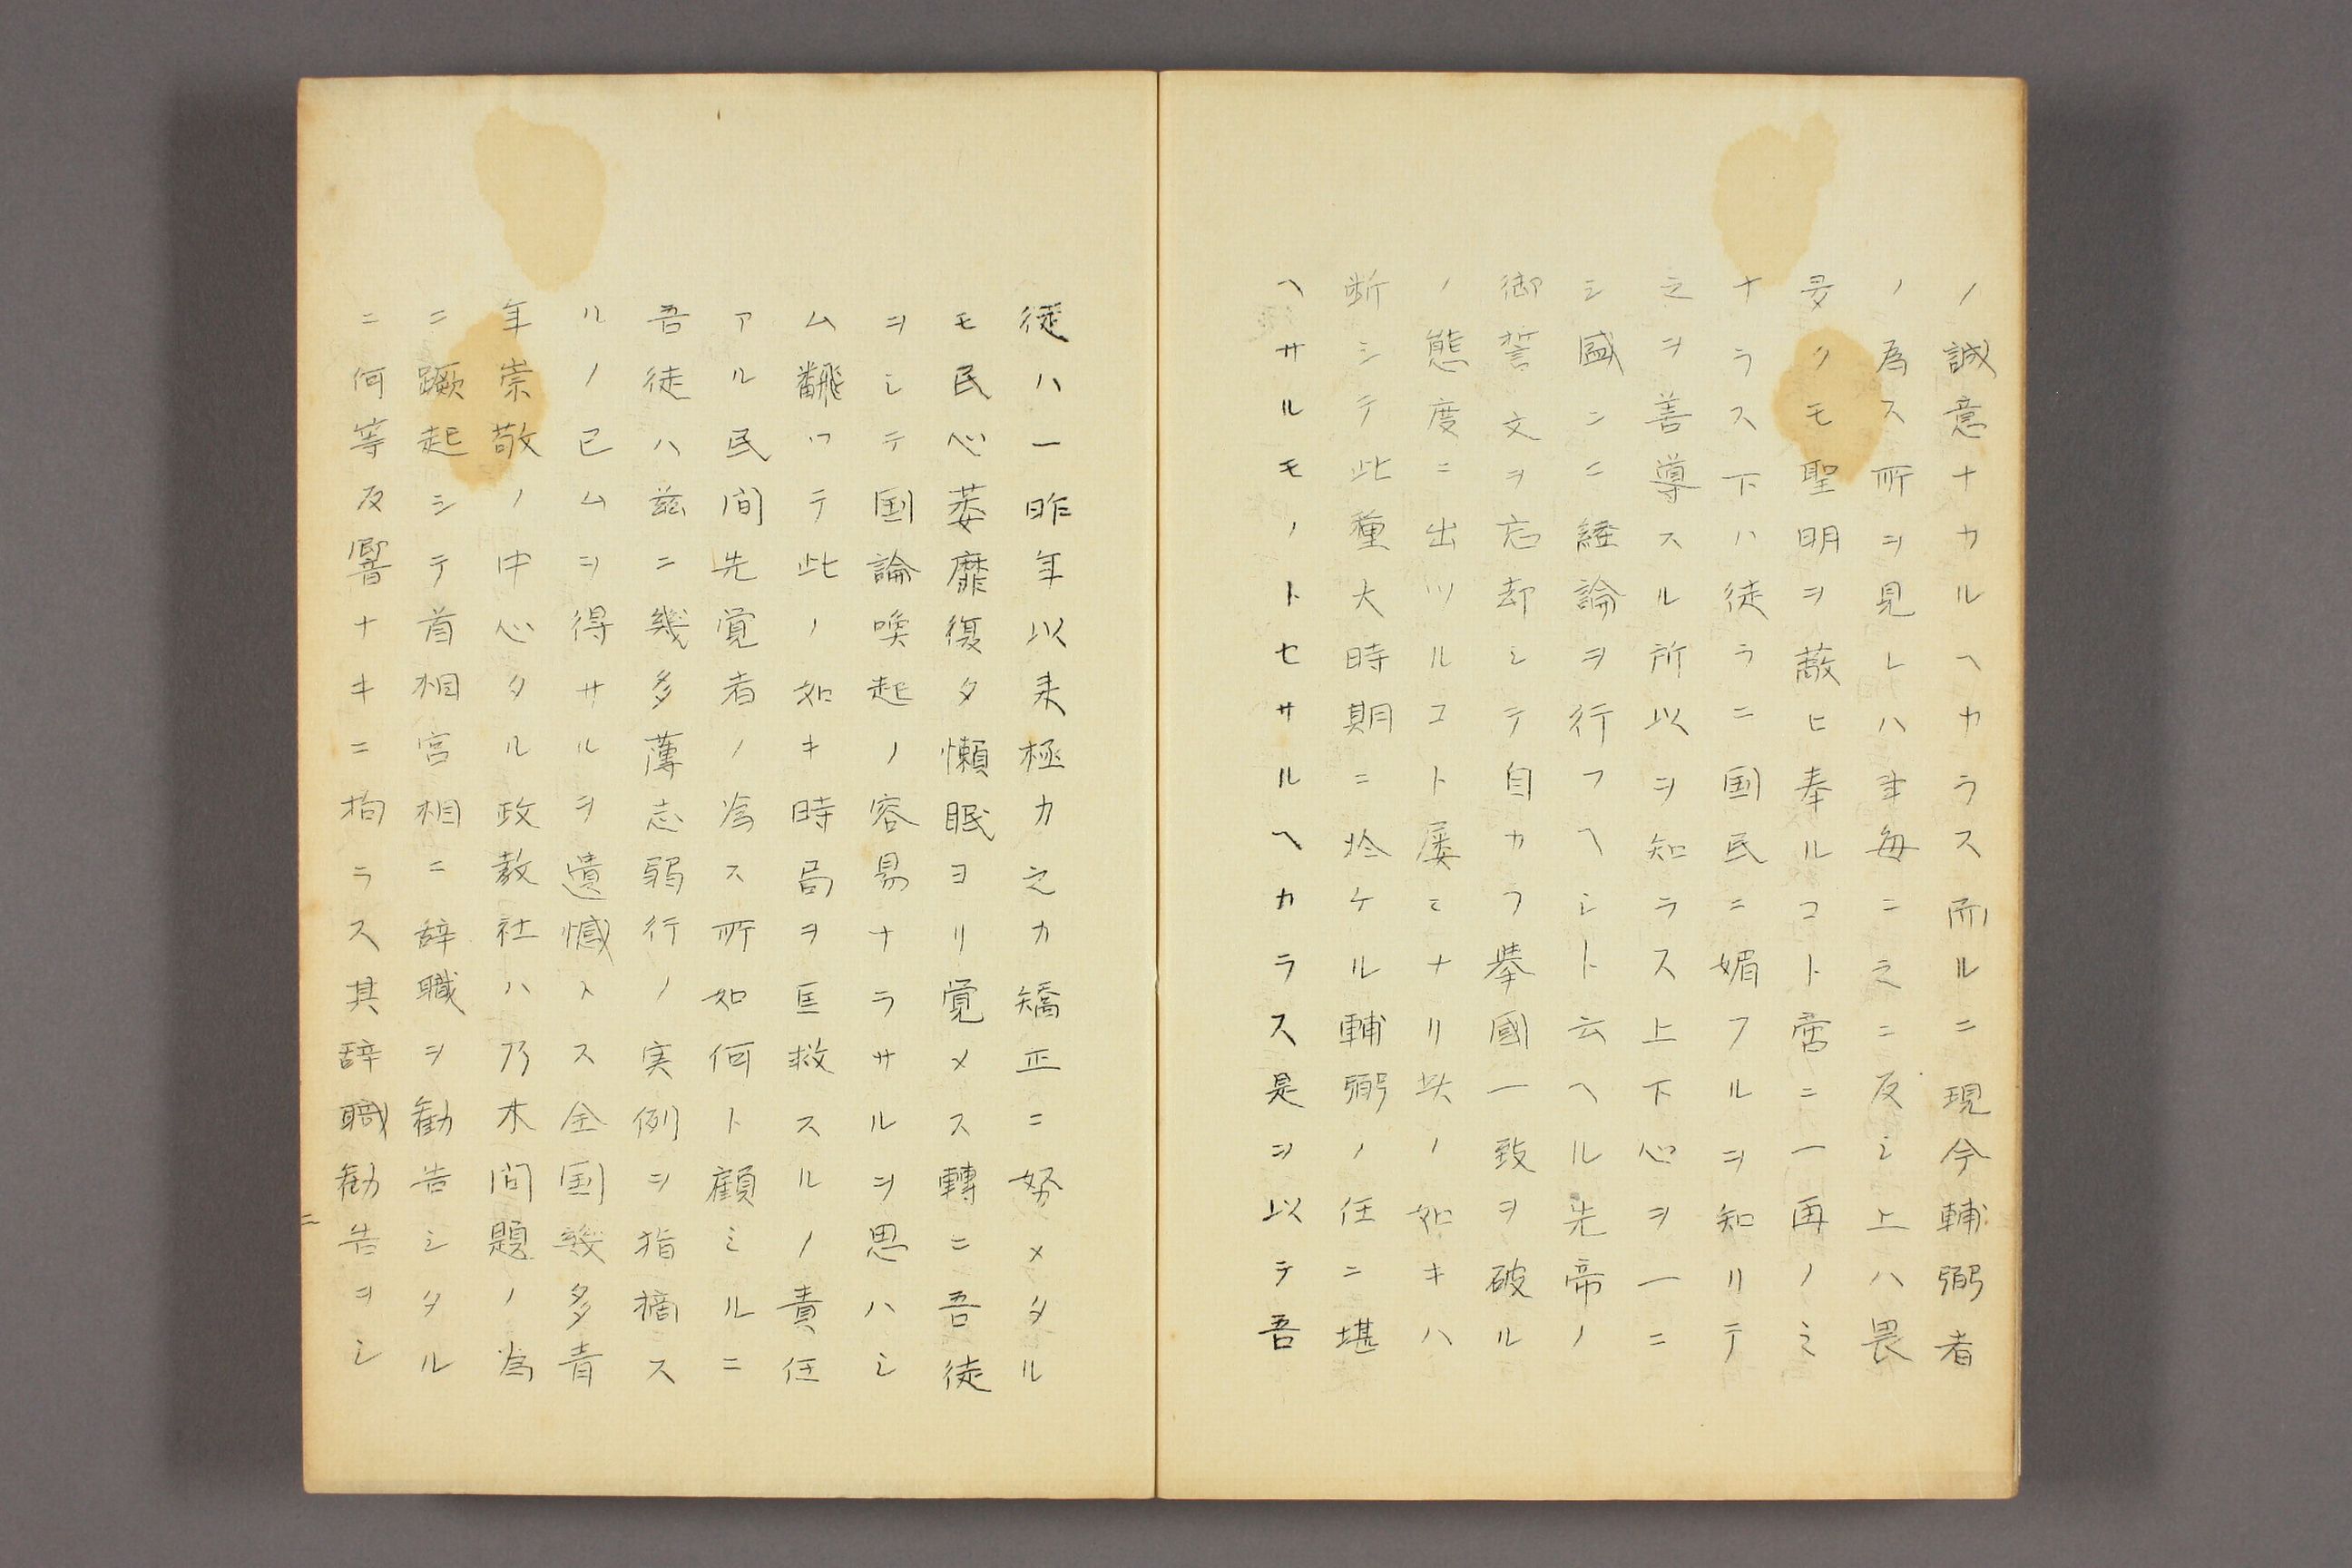 ノ誠意ナカルヘカラス而ルニ現今輔弼者
ノ為ス所ヲ見レハ事毎ニ之ニ反シ上ハ畏
クモ聖明ヲ蔽ヒ奉ルコト啻ニ一再ノミ
ナラス下ハ徒ラニ国民ニ媚フルヲ知リテ
之ヲ善導スル所以ヲ知ラス上下心ヲ一ニ
シ盛ンニ経論ヲ行フヘシト云ヘル先帝ノ
御誓文ヲ忘却シテ自カラ挙國一致ヲ破ル
ノ態度ニ出ツルコト屡〻ナリ此ノ如キハ
断シテ此重大時期ニ於ケル輔弼ノ任ニ堪
ヘサルモノトセサルヘカラス是ヲ以テ吾
徒ハ一昨年以来極力之カ矯正ニ努メタル
モ民心萎靡復タ懶眠ヨリ覚メス轉ニ吾徒
ヲシテ国論喚起ノ容易ナラサルヲ思ハシ
ム飜ツテ此ノ如キ時局ヲ匡救スルノ責任
アル民間先覚者ノ為ス所如何ト顧ミルニ
吾徒ハ茲ニ幾多薄志弱行ノ実例ヲ指摘ス
ルノ已ムヲ得サルヲ遺憾トス全国幾多青
年崇敬ノ中心タル政教社ハ乃木問題ノ為
ニ蹶起シテ首相宮相ニ辞職ヲ勧告シタル
ニ何等反響ナキニ拘ラス其辞職勧告ヲシ
二